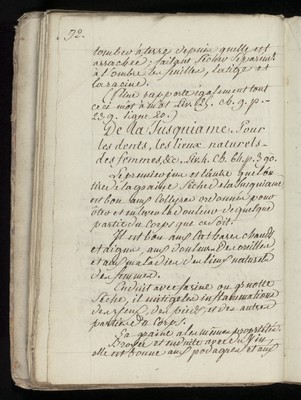 92.
tomber à terre depuis quelle est
arrachée: faisant sécher séparem.t
à l'ombre les feuilles, la tige et
la racine.
(Pline rapporte égalemant tout
ce ci mot à mot Liv. 25. ch. 9. p.
23.9. ligne 20.)
De la Jusquiame. Pour
les dents, les lieux naturels
des femmes, &c. Liv. 4. Ch. 64. p. 390.
Le premier jus et l'autre que l'on
tire de la graine sèche de la Jusquiame
est bon aux Collyres ordonnés pour
oter et enlever la douleur de quelque
partie du corps que ce soit.
Il est bon aux Catharres chauds
et aigus, aux douleurs d'oreilles
et aux maladies des lieux naturels
des femmes.
Enduit avec farine ou griotte
sèche, il mitige les inflammations
des yeux, des pieds et des autres
parties du Corps.
La graine a les mêmes proprietés.
Broyée et enduite avec du Vin
elle est bonne aux podagres et aux